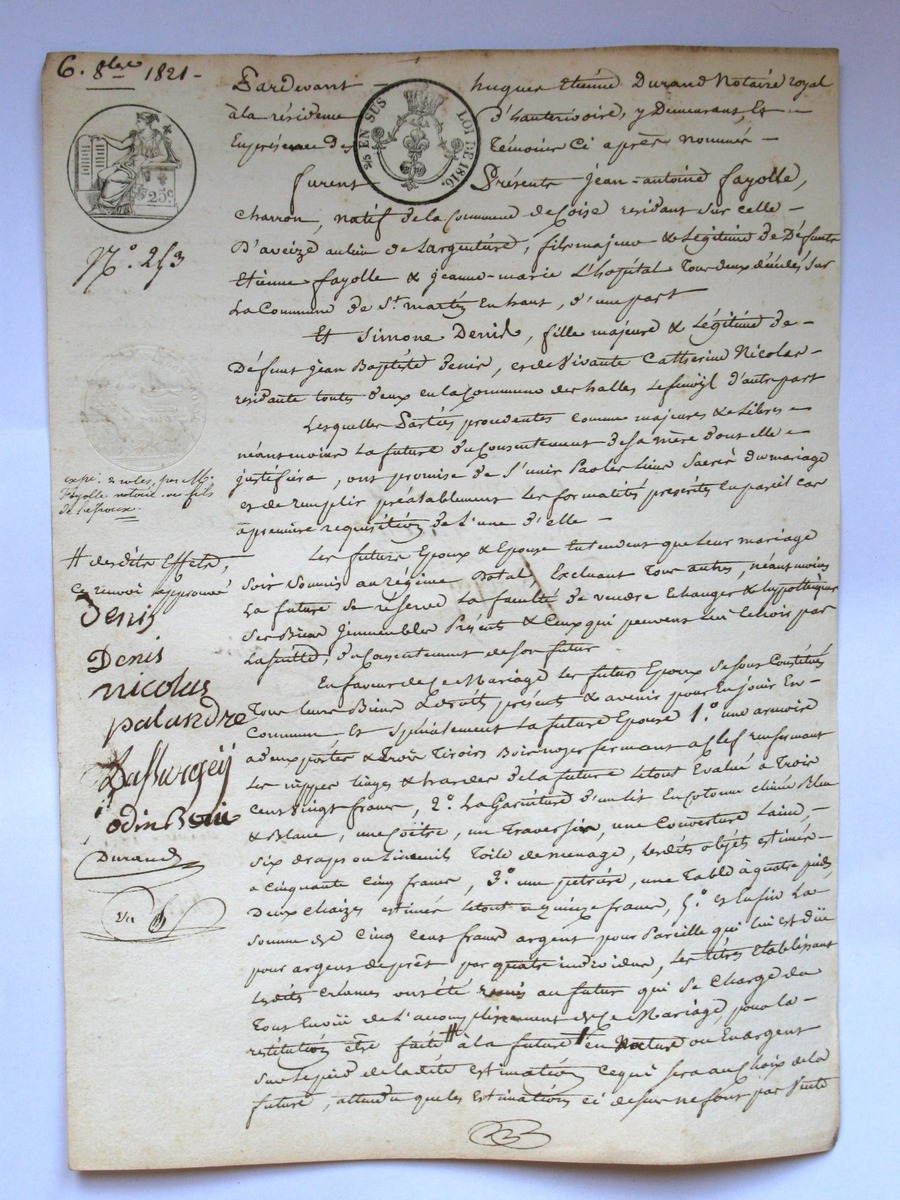 6. 8bre 1821 -
Pardevant hugues Etiéne Durand Notaire royal
à la résidence d'hauterivoire, y Demeurant, Et -
En présence des Témoins Ci après nommés -
25 EN SUS LOI DE 1816.
25c
furent Présents jean-antoine fayolle,
No. 253
charron, natif de la Commune de Coise residant sur celle -
D'aveize au lieu de Largentiere, fils majeur & Légitime de Défunts
Etienne fayolle & jeanne-marie L'hopital Tous deux décédés sur
La Commune de St. martin En haut, d'une part
Et Simone Denis, fille majeure & Légitime de -
Défunt jean Baptiste Denis, et de Vivante Catherine Nicolas -
residante toutes deux en la Commune des halles Lefenoyl d'autre part
Lesquelles Parties procedentes comme majeures & Libres -
néanmoins La future du Consentement de sa mère dont elle -
justifiera, ont promise de S'unir Par les Liens Sacrés du mariage
et de remplir préalablement Les formalités prescrits En pareil cas
à première requisition de L'une d'elle -
expé. 2 roles, par M.
Fayolle notaire
de l'époux.
Les futurs Epoux & Epouse Entendent que Leur mariage
Soit Soumis au regime Dotal, Excluant Tous autres, néant moins
La future Se réserve La faculté de vendre Echanger & hypottequer
Ses Biens Jmmeubles Présents & Ceux qui peuvent lui Echoir par
La suitte, du Consentement de Son futur
# desdits Effets,
Ce renvoi approuvé
Denis
Denis
nicolas
palandre
Dassurgey
odin Boui
Durand
En faveur de Ce Mariage les futurs Epoux Se sont Constitués
Tous leurs Biens & droits présents & avenir pour En jouir En -
Commun, Et Spécialement La future Epouse 1.° une armoire
a deux portes & Trois Tiroirs Bois noyer fermant a Clef renfermant
Les nippes linges & hardes de la future le tout Evalué a Trois
Cent vingt francs, 2.° La Garniture d'un lit En Cotonne chinée Bleu
& Blanc, une Coëtre, un Traversin, une Couverture Laine, -
Six draps ou Linceuils Toile de menage, lesdits objets estimés -
a Cinquante Cinq francs, 3.° une petriere, une Table à quatre pieds
Deux Chaizes estimés le tout a quinze francs, 5.° et Enfin La -
Somme de Cinq Cent francs argent pour Pareille qui lui est düe
pour argent de prêt par quatre individus, Les titres Etablissant
lesdits Créances ont été remis au futur qui Se Charge du
Tout Envüe de L'accomplissement de Ce Mariage, pour la -
restitution être faite # à la future # en Nature ou En argent
Sur le pied de la dite estimation Ce qui sera au Choix de la
future, attendu que les Estimations ci dessus ne font pas Vente